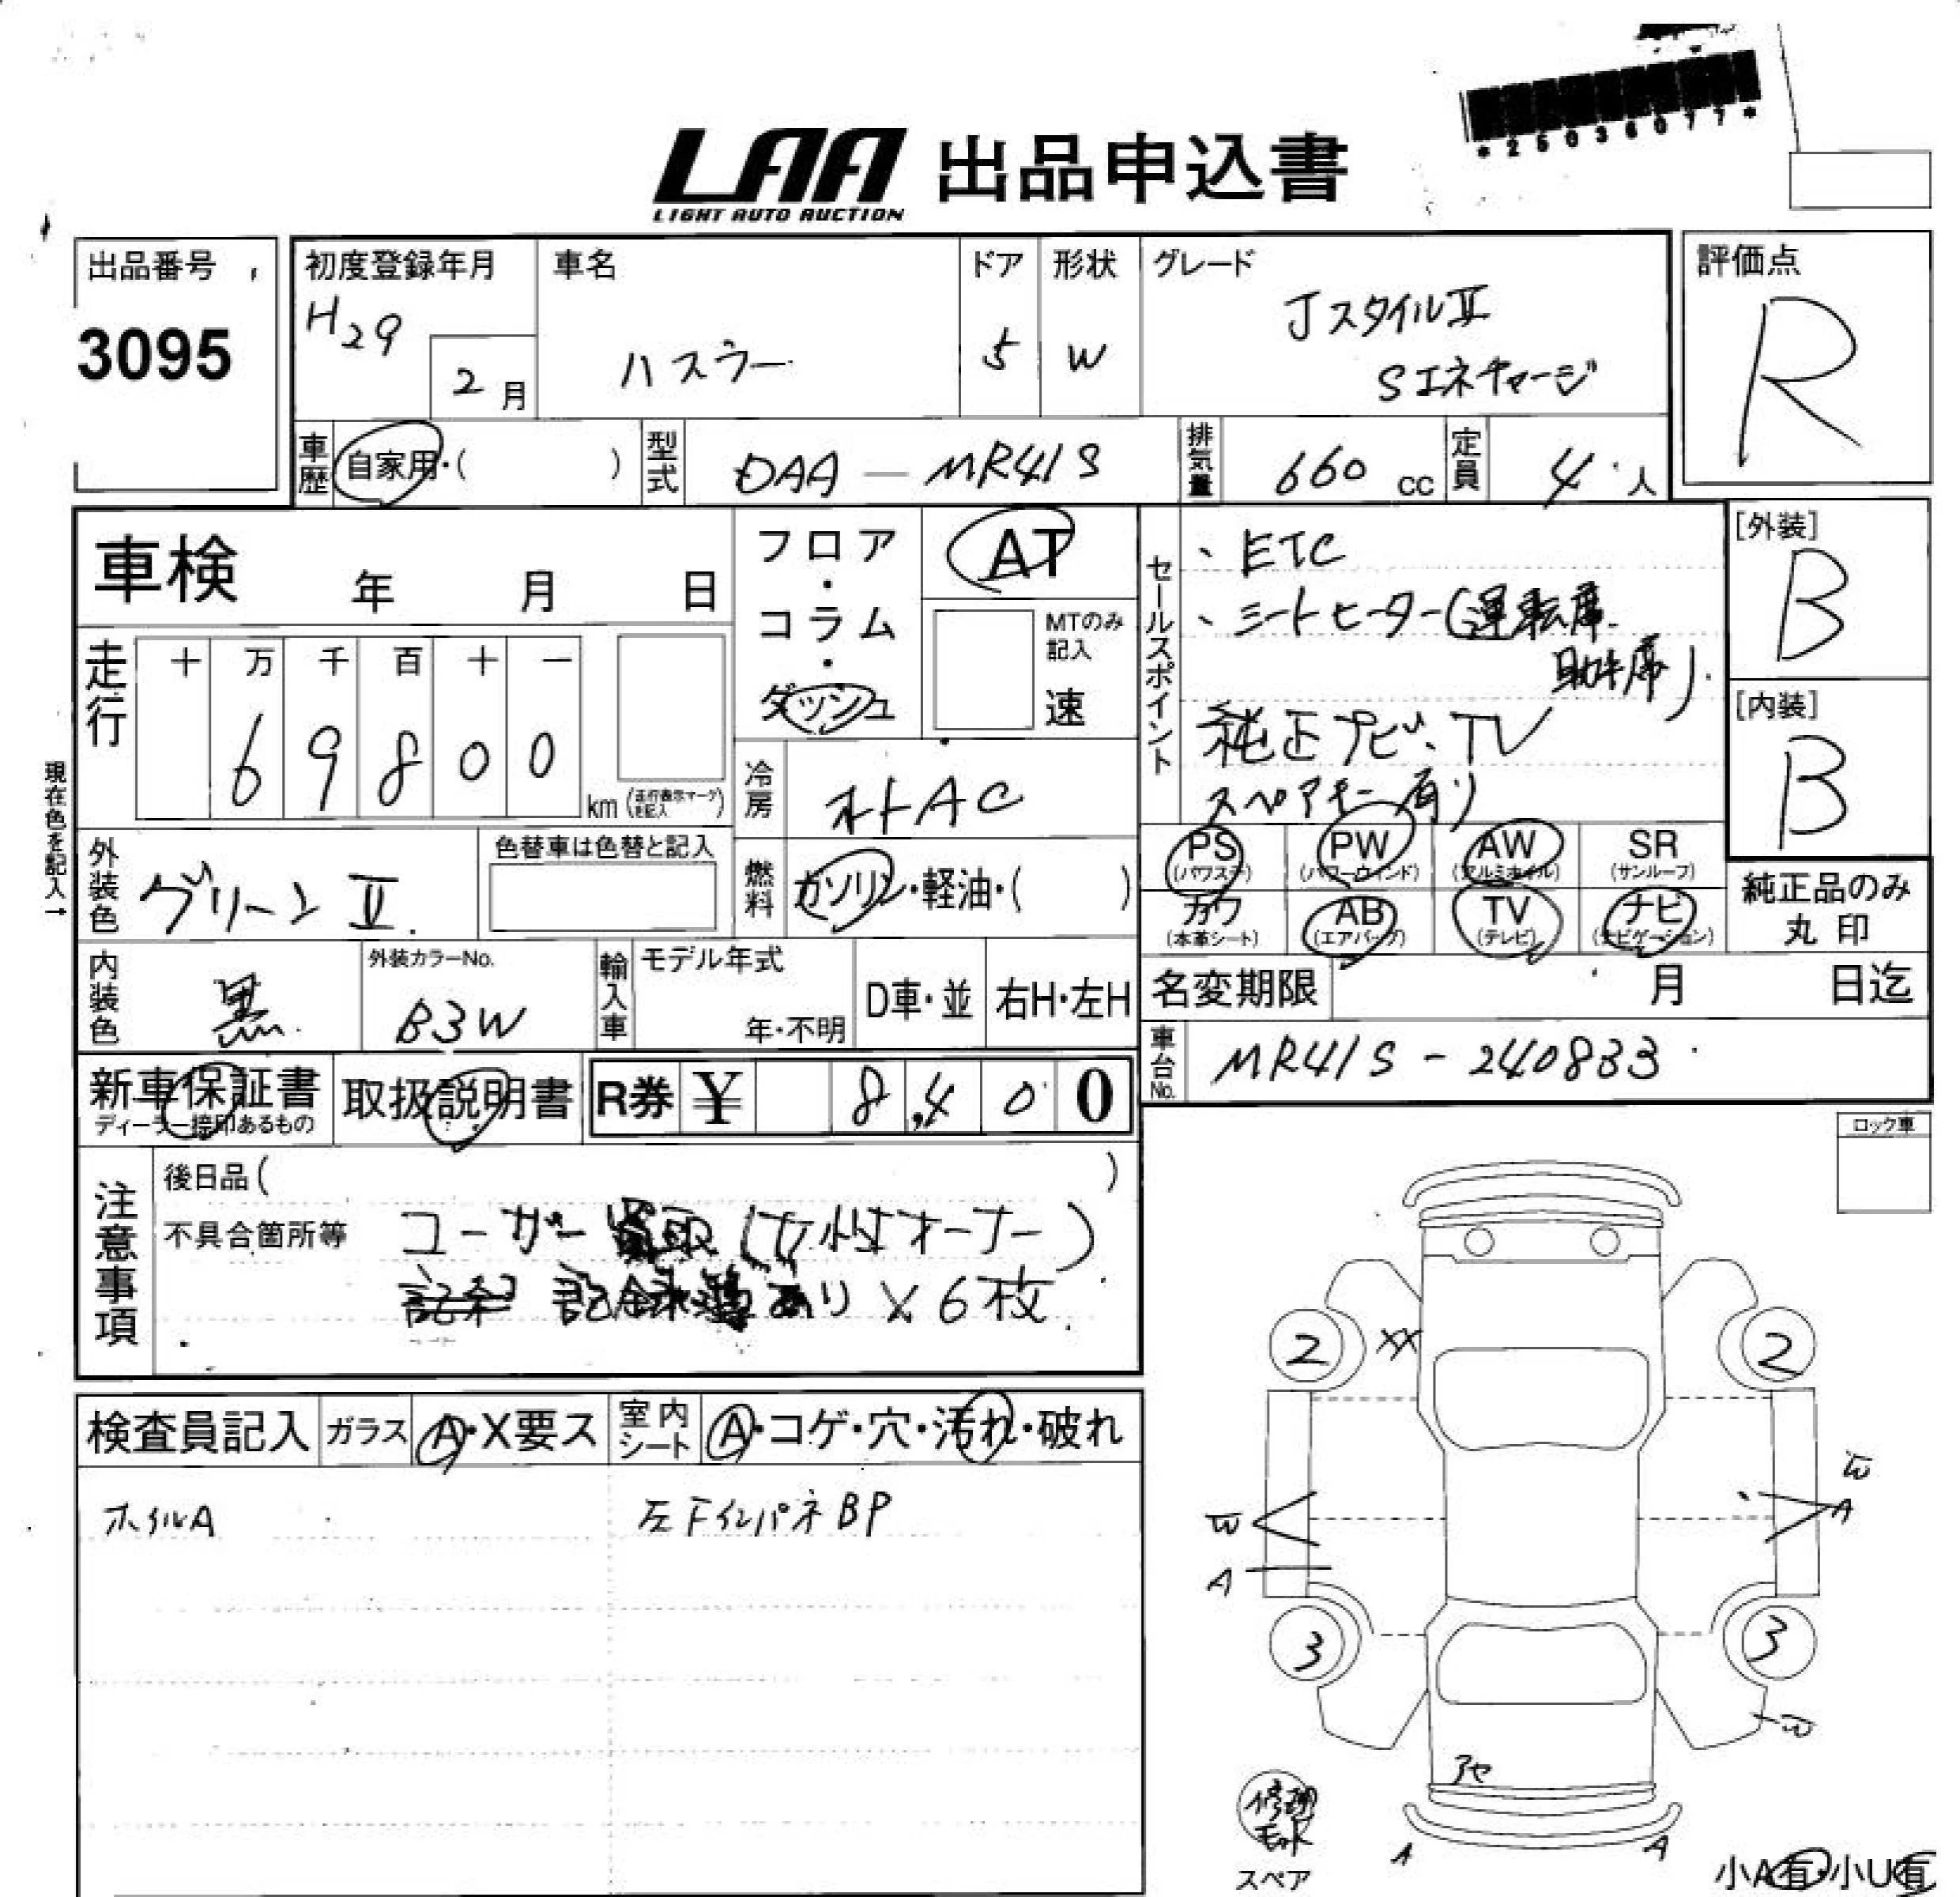 *25036077*
LAA 出品申込書
LIGHT AUTO AUCTION
出品番号
3095
初度登録年月
H29
2月
車名
ハスラー
ドア
5
形状
W
グレード
JスタイルⅡ
Sエネチャージ
評価点
R
車歴
自家用・( )
型式
DAA-MR41S
排気量
660 cc
定員
4人
車検 年 月 日
フロア・コラム・ダッシュ
AT
MTのみ記入
速
セールスポイント
、ETC
、シートヒーター(運転席.
助手席)
純正ナビ、TV
スペアキー有り
[外装]
B
[内装]
B
走行
十 万 千 百 十 一
6 9 8 0 0
km (走行表示マークを記入)
現在色を記入→
冷房
オートAC
外装色
グリーンⅡ
色替車は色替と記入
燃料
ガソリン・軽油・( )
PS (パワステ)
PW (パワーウィンド)
AW (アルミホイル)
SR (サンルーフ)
カワ (本革シート)
AB (エアバッグ)
TV (テレビ)
ナビ (ナビゲーション)
純正品のみ
丸 印
内装色
黒
外装カラーNo.
B3W
輸入車
モデル年式
年・不明
D車・並
右H・左H
名変期限 月 日迄
車台No.
MR41S-240833
新車保証書
ディーラー捺印あるもの
取扱説明書
R券 ¥ 8,400
ロック車
注意事項
後日品( )
不具合箇所等
ユーザー買取(女性オーナー)
記録簿あり×6枚
検査員記入
ガラス
A・X要ス
室内シート
A・コゲ・穴・汚れ・破れ
ホイルA
左FインパネBP
2
XX
2
W
A
W
A
3
3
W
アセ
修理キット
スペア
A
A
小A有・小U有